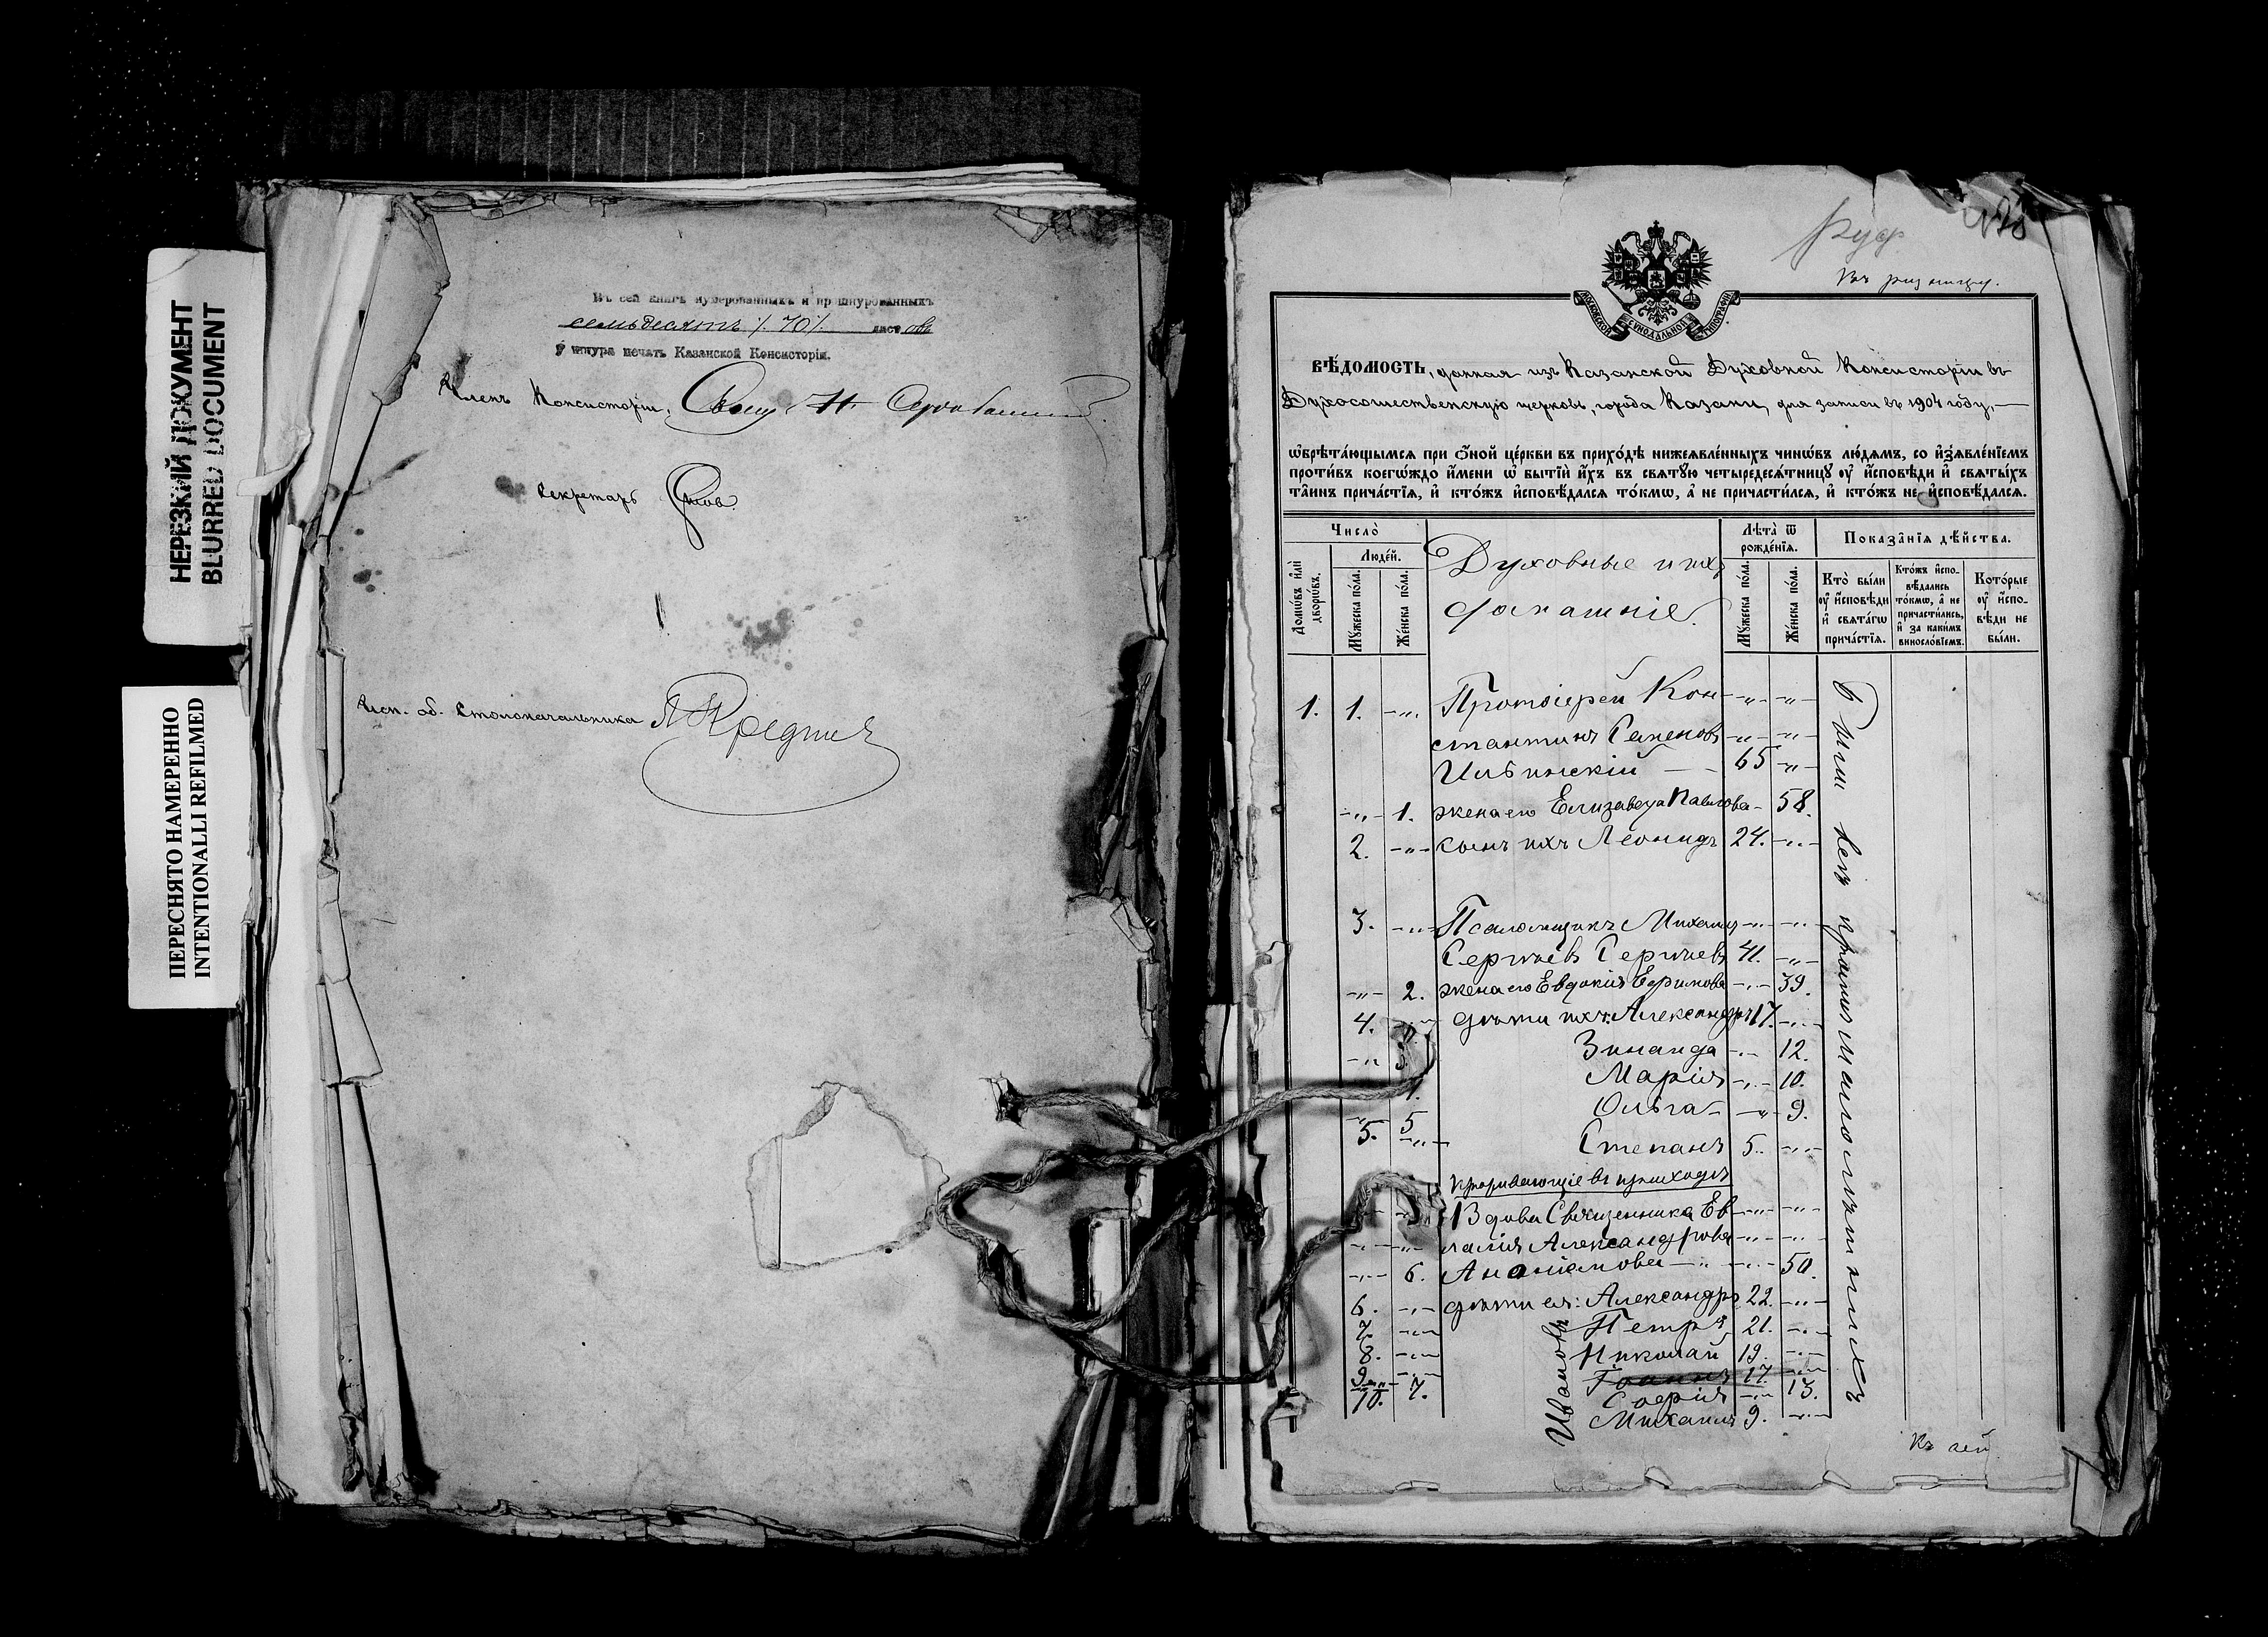 НЕРЕЗКИЙ ДОКУМЕНТ
BLURRED DOCUMENT
ПЕРЕСНЯТО НАМЕРЕННО
INTENTIONALLI REFILMED
Въ сей книгѣ нумерованныхъ и прошнурованныхъ
семьдесятъ /70/ листовъ
У шнура печать Казанской Консисторіи.
Членъ Консисторіи, Свящ. Н.
Секретарь
Исп. об. Столоначальника
Въ ризницу.
МОСКОВСКОЙ СУНОДАЛЬНОЙ ТИПОГРАФІИ
ВѢ́ДОМОСТЬ, данная изъ Казанской Духовной Консисторіи въ
Духосошественскую церковь, города Казани, для записи въ 1904 году,
ѡ҆брѣта́ющымсѧ при ѻ҆́ной це́ркви въ прихо́дѣ нижеѧвле́нныхъ чинѡ́въ лю́демъ, со и҆з̾ѧвле́нїемъ
проти́въ коегѡ́ждо и҆́мени ѡ҆ бытїѝ и҆́хъ въ свѧту́ю четыредесѧ́тницу ᲂу҆ и҆́сповѣди и҆ свѧты́хъ
та̑инъ прича́стїѧ, и҆ кто́жъ и҆сповѣ́далсѧ то́кмѡ, а҆ не причасти́лсѧ, и҆ кто́жъ не и҆сповѣ́далсѧ.
Число̀
Домѡ́въ и҆лѝ дворѡ́въ.
Люде́й.
Мꙋ́жеска по́ла.
Же́нска по́ла.
Духовные и ихъ
домашніе.
Лѣ́та ѿ рожде́нїѧ.
Мꙋ́жеска по́ла.
Же́нска по́ла.
Показа̑нїѧ дѣ́йства.
Кто̀ бы́ли ᲂу҆ и҆́сповѣди и҆ свѧта́гѡ прича́стїѧ.
Кто́жъ и҆спо-вѣ́дались то́кмѡ, а҆ не причасти́лись, и҆ за каки́мъ виносло́вїемъ.
Кото́рые ᲂу҆ и҆спо-вѣди не бы́ли.
1. 1. -"- Протоіерей Кон- -"- -"-
стантинъ Семеновъ -"- -"-
Ильинскій — 65 -"-
-"- 1. жена его Елизавета Павлова - 58.
2. -"- сынъ ихъ Леонидъ 24. -"-
3. -"- Псаломщикъ Михаилъ -"- -"-
Сергѣевъ Сергѣевъ 41. -"-
-"- 2. жена его Евдокія Ефимова -"- 39.
4. -"- дѣти ихъ: Александръ 17. -"-
-"- 3. Зинаида -"- 12.
Марія -"- 10.
5 Ольга -"- 9.
5. -"- Степанъ 5. -"-
Проживающіе въ приходѣ
Вдова Священника Ев -"- -"-
лалія Александрова -"- -"-
-"- 6. Ананіамова -"- 50.
6. -"- дѣти ея: Александръ 22. -"-
7. -"- Петръ 21. -"-
8. -"- Николай 19. -"-
9. -"- Іоаннъ 17. -"-
7. Софія -"- 13.
10. Михаилъ 9. -"-
Ивановы
Были всѣ кромѣ малолѣтнихъ
Къ сей